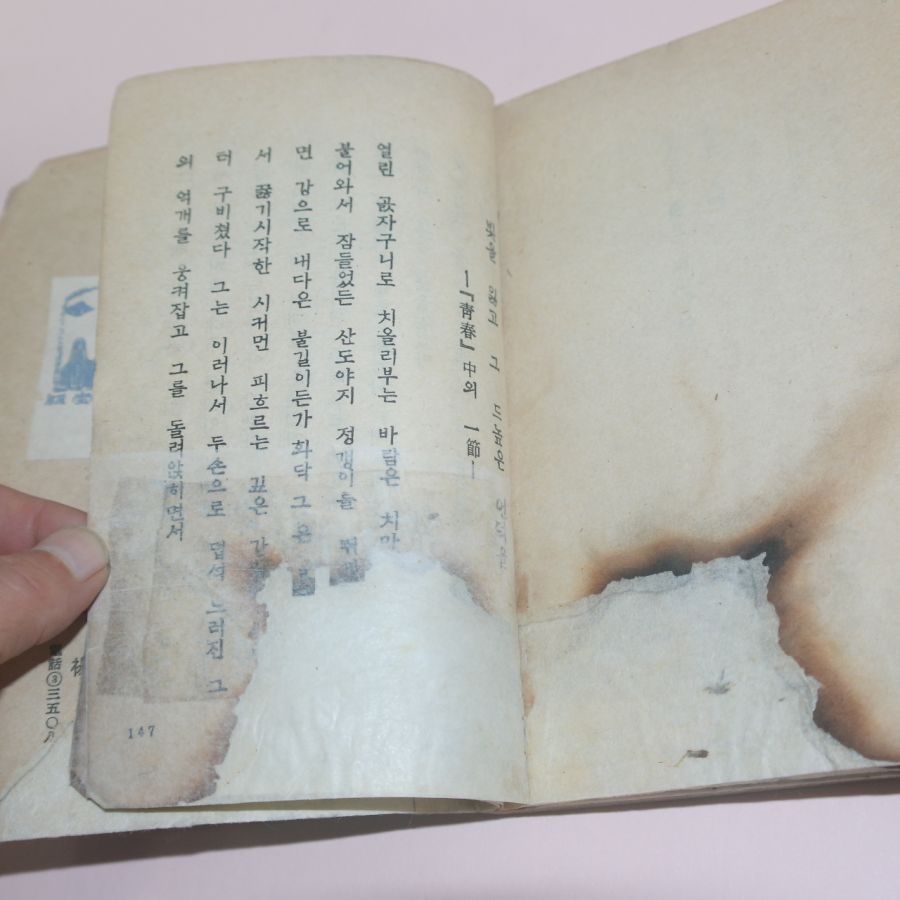 빛을 잃고 그 드높은 언덕을
—『靑春』中의 一節—
열린 곬자구니로 치올리부는 바람은 치마
불어와서 잠들었든 산도야지 정갱이를
면 감으로 내다은 불길이든가 화닥 그 은
서 끓기시작한 시커먼 피흐르는 깊은
더 구비쳤다 그는 이러나서 두손으로 덥석 느러진 그
의 억개를 웅켜잡고 그를 돌려앉히면서
147
電話③三五〇八